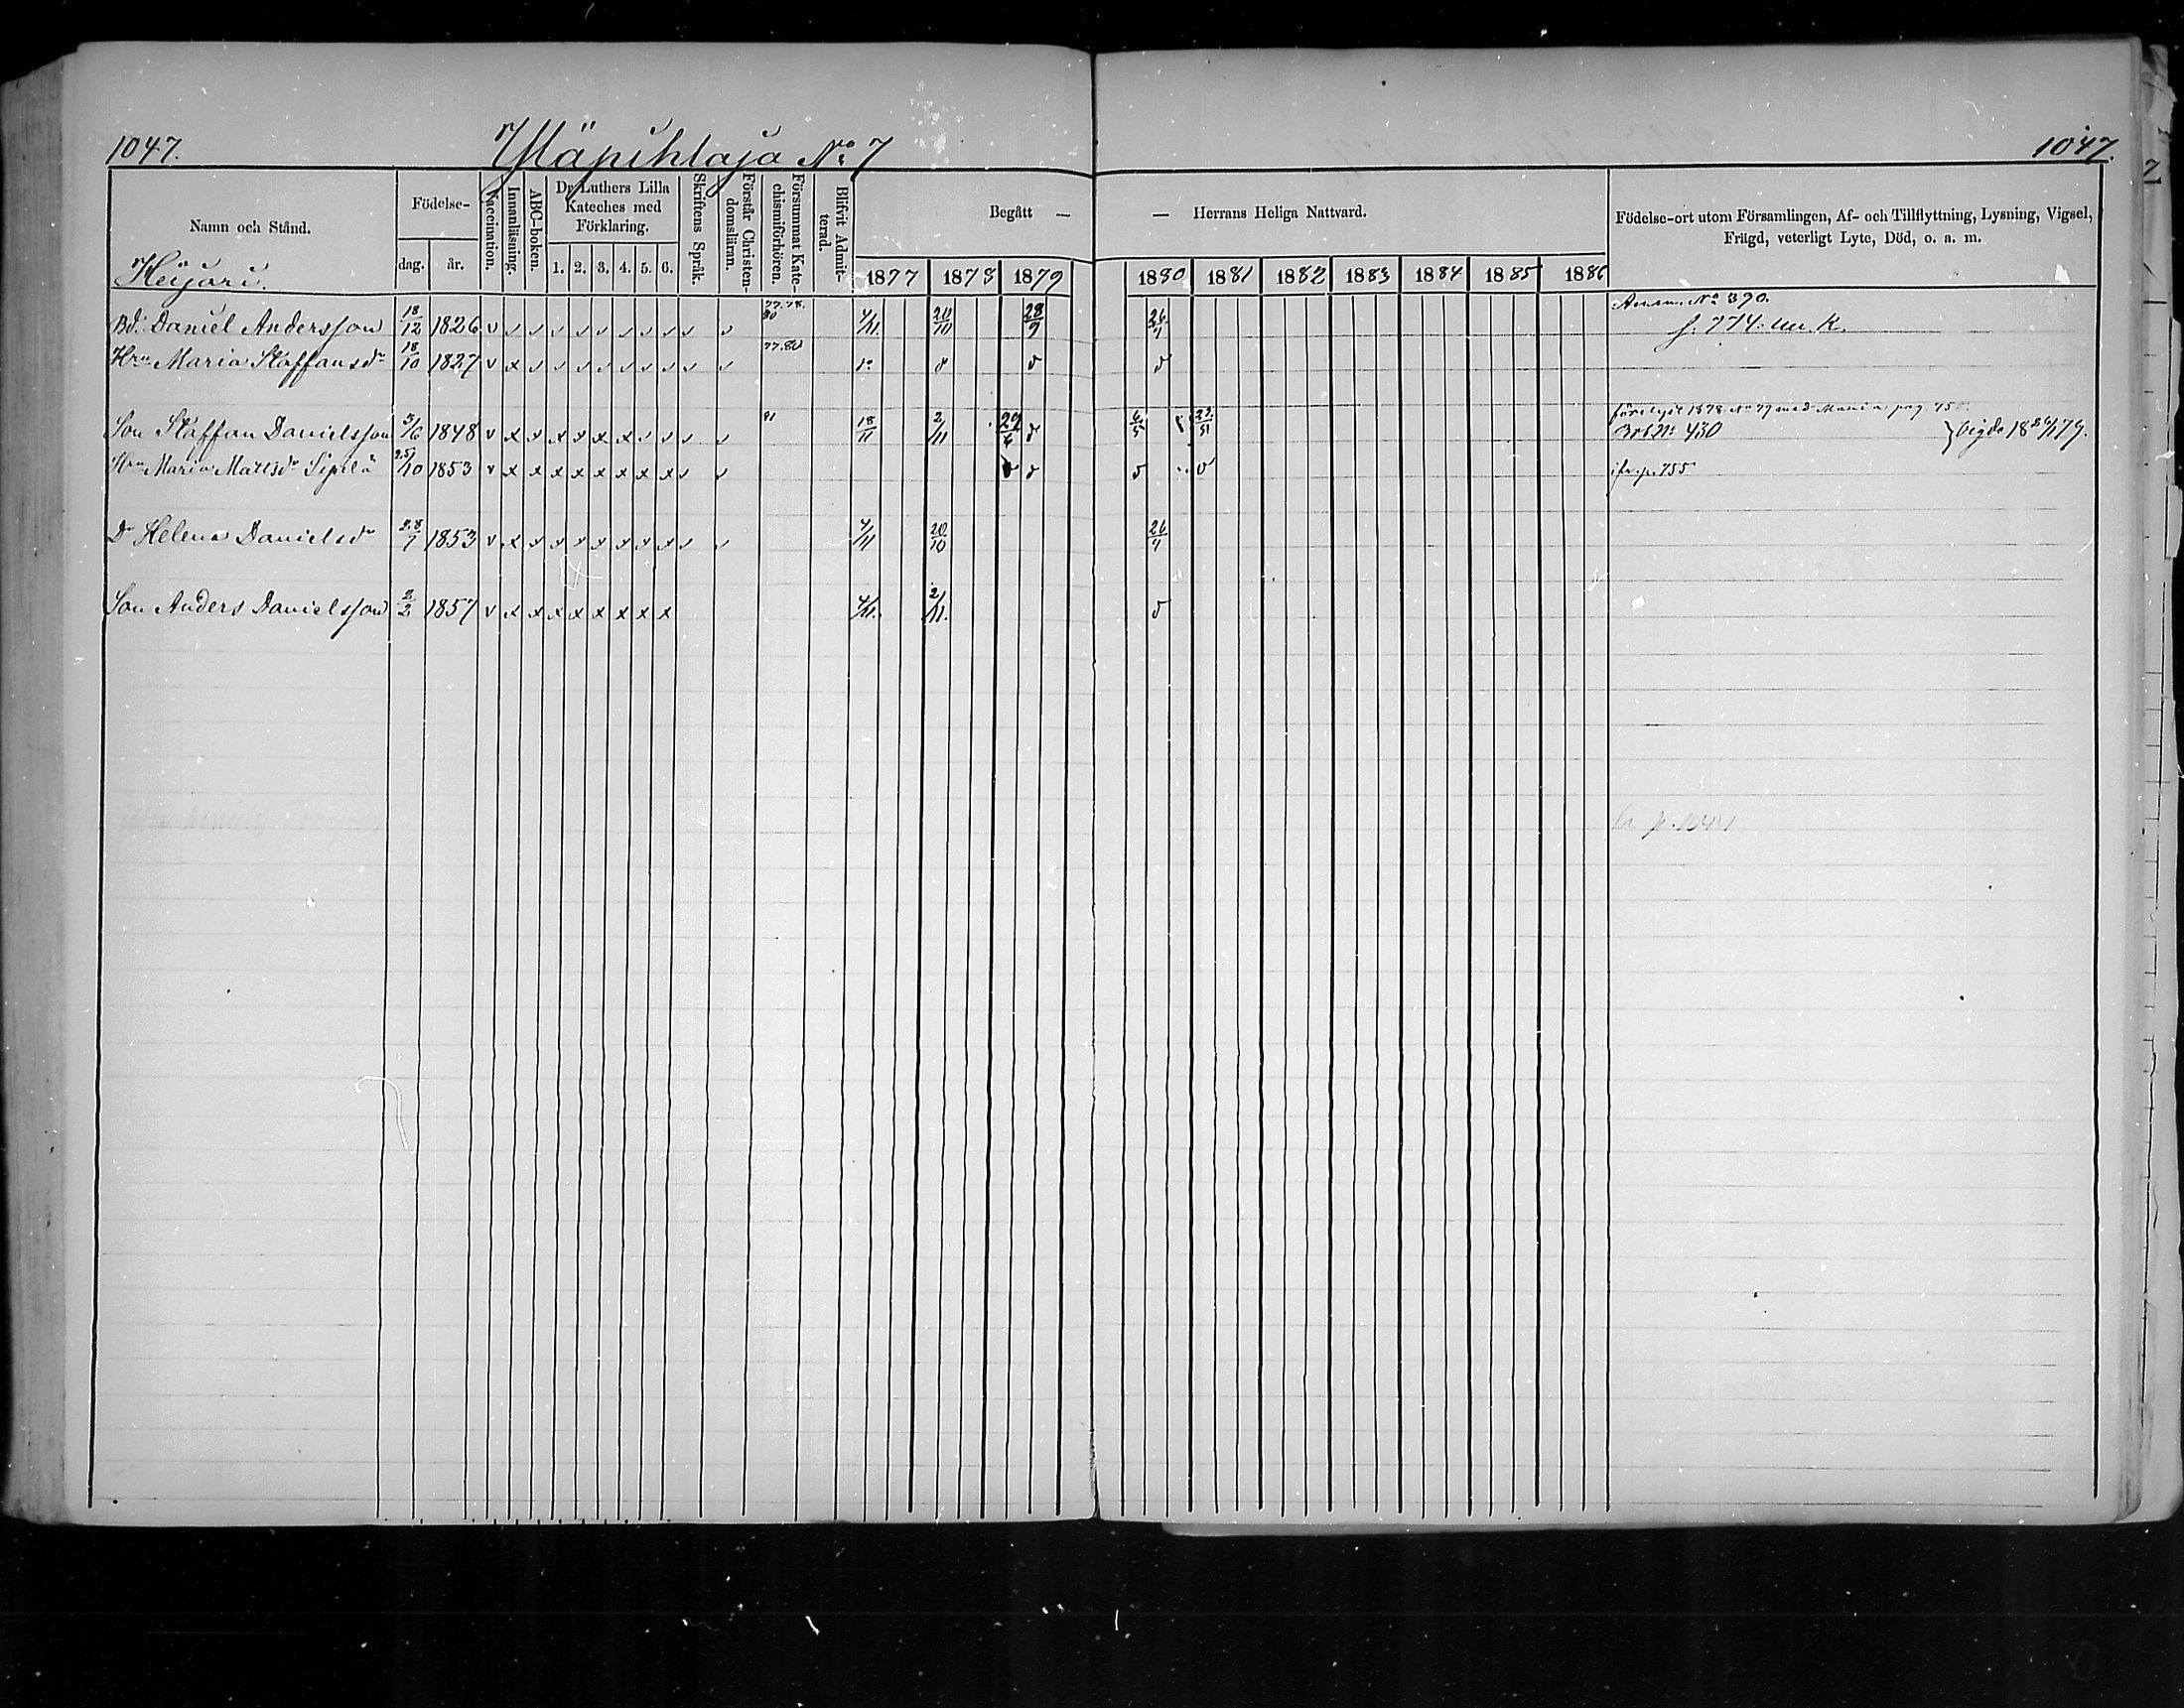 1047. Yläpihlaja No 7 1047.
Namn och Stånd. Födelse- dag. år. Vaccination. Innanläsning. ABC-boken. Dr Luthers Lilla Kateches med Förklaring. 1. 2. 3. 4. 5. 6. Skriftens Språk. Förstår Christendomsläran. Försummat Katechismiförhören. Blifvit Admitterad. Begått — — Herrans Heliga Nattvard. Födelse-ort utom Församlingen, Af- och Tillflyttning, Lysning, Vigsel, Frägd, veterligt Lyte, Död, o. a. m.
1877 1878 1879 1880 1881 1882 1883 1884 1885 1886
Heijari.
77.78. 80 No 390.
Bd. Daniel Andersson 18/12 1826 v 4/11. 20/10 28/9 26/9 s. 774.
Hru Maria Staffansdr 18/10 1827 v x 77.80
1878 No 79 med Maria pag 75
Son Staffan Danielsson 3/6 1848 v x x x x x x 81 18/11 2/11 29/6 6/5 430 vigde 18 26/1 79.
Hru Maria Mattsdr Sipilä 25/10 1853 v x x x x x x x x p. 755
Dr Helena Danielsdr 28/7 1853 v x x x x x x x x 4/11 20/10 26/9
Son Anders Danielsson 2/2 1857 v x x x x x x x x 4/11. 2/11.